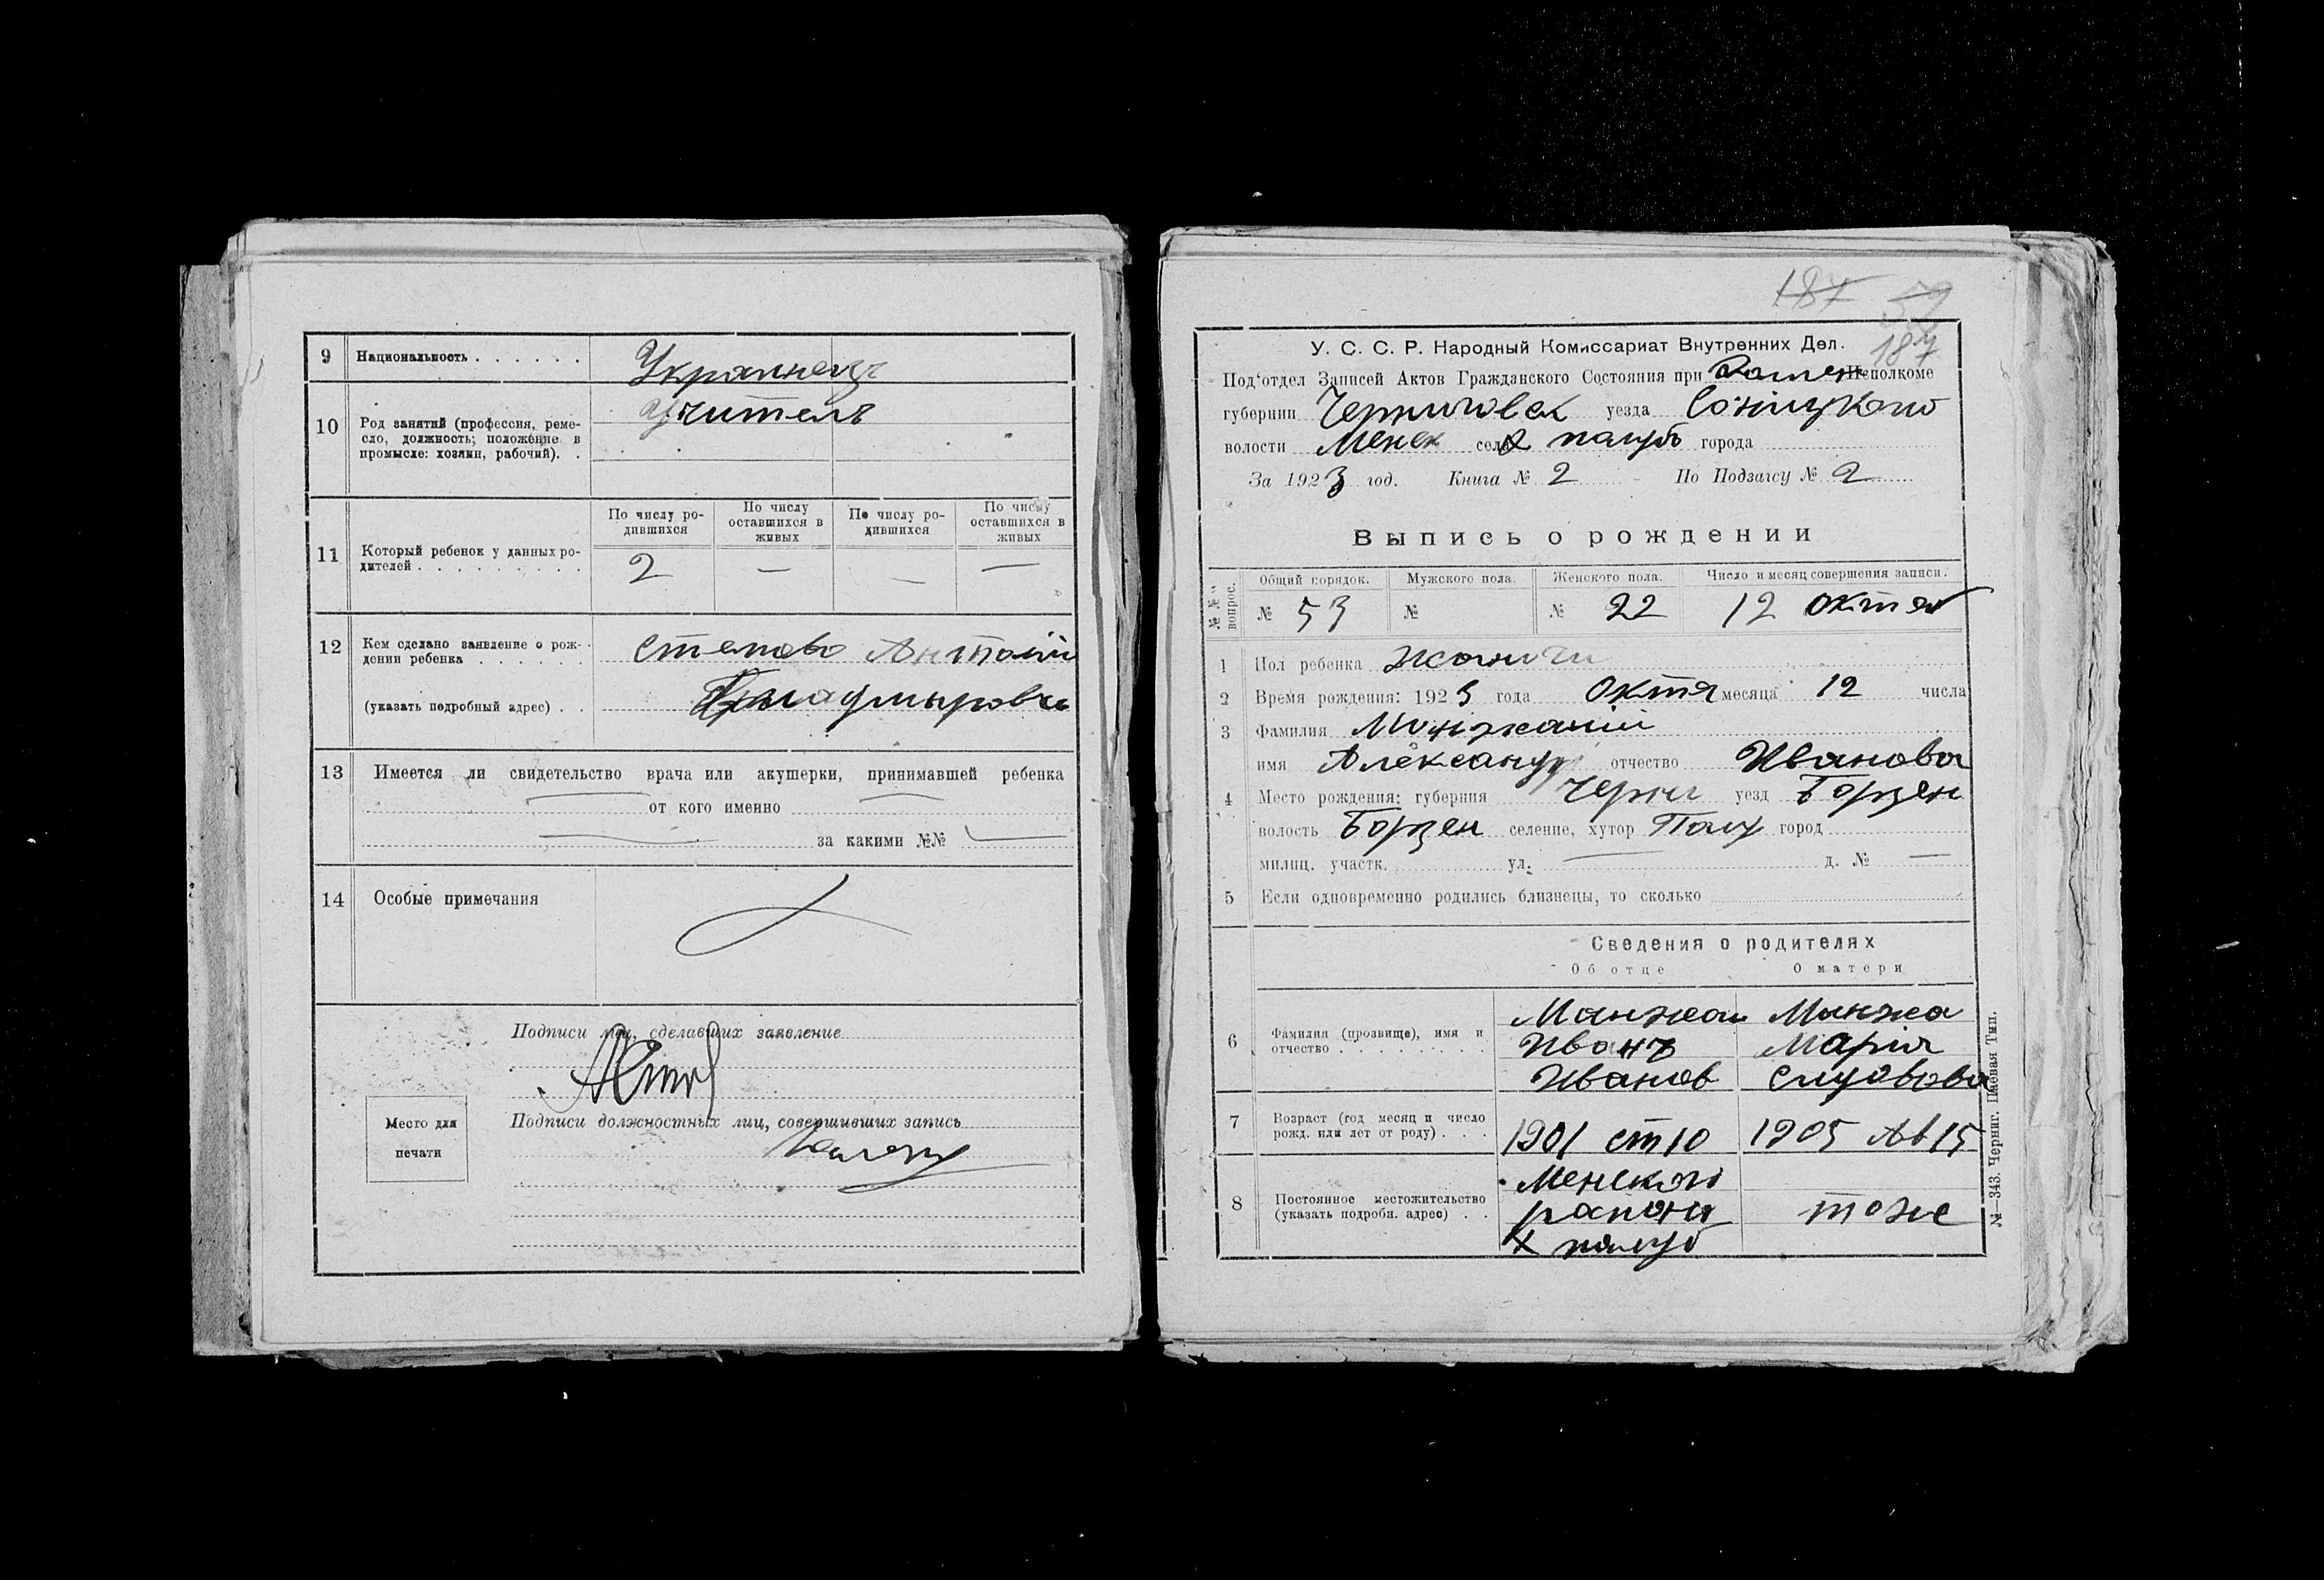 9 Национальность . . . . . . Украинець
10 Род занятий (профессия, реме-
сло, должность; положение в
промысле: хозяин, рабочий). .
учитель
По числу ро-
дившихся
По числу
оставшихся в
живых
По числу ро-
дившихся
По числу
оставшихся в
живых
11 Который ребенок у данных ро-
дителей . . . . . . . . . 2 — — —
12 Кем сделано заявление о рож-
дении ребенка . . . . . .
(указать подробный адрес) . .
13 Имеется ли свидетельство врача или акушерки, принимавшей ребенка
от кого именно
за какими №№
14 Особые примечания
Подписи лиц, сделавших заявление
Подписи должностных лиц, совершивших запись
Место для
печати
187 52
187
У. С. С. Р. Народный Комиссариат Внутренних Дел.
Под'отдел Записей Актов Гражданского Состояния при Исполкоме
губернии Черниговск уезда Сосницкого
волости Менск села города
За 1923 год. Книга № 2 По Подзагсу № 2
Выпись о рождении
№№ вопрос.
Общий порядок. Мужского пола. Женского пола. Число и месяц совершения записи.
№ 53 № № 22 12 октяб
1 Пол ребенка
2 Время рождения: 1923 года Октя месяца 12 числа
3 Фамилия
имя Александр отчество Иванова
4 Место рождения: губерния Черниг уезд Борзен
волость Борзен селение, хутор город
милиц. участк. ул. — д. № —
5 Если одновременно родились близнецы, то сколько
Сведения о родителях
Об отце О матери
6 Фамилия (прозвище), имя и
отчество . . . . . . . . .
Манжа
Иванъ
Иванов
Манжа
Марія
7 Возраст (год месяц и число
рожд. или лет от роду) . . .
1901 1905 Ав 15
8 Постоянное местожительство
(указать подробн. адрес) . .
Менского
района
тоже
№—343. Черниг. Паевая Тип.